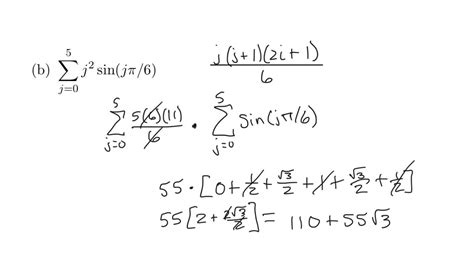 (b) \sum_{j=0}^{5} j^2 sin(jπ/6)    \frac{j(j+1)(2i+1)}{6}
\sum_{j=0}^{5} \frac{5(6)(11)}{6} · \sum_{j=0}^{5} sin(jπ/6)
55 · [0 + \frac{1}{2} + \frac{√3}{2} + 1 + \frac{√3}{2} + \frac{1}{2}]
55 [2 + \frac{2√3}{2}] = 110 + 55√3